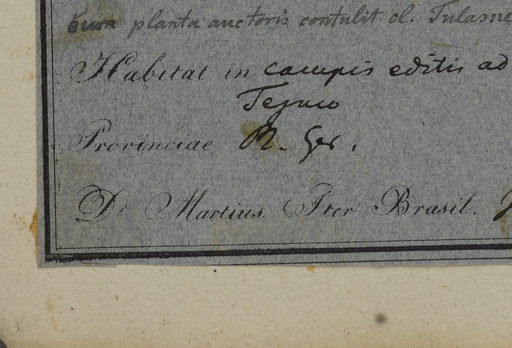 cum planta auctoris contulit cl. Tulasne
Habitat in campis editis ad
Tejuco
Provinciae M. Ger.
Dr. Martius Iter Brasil.